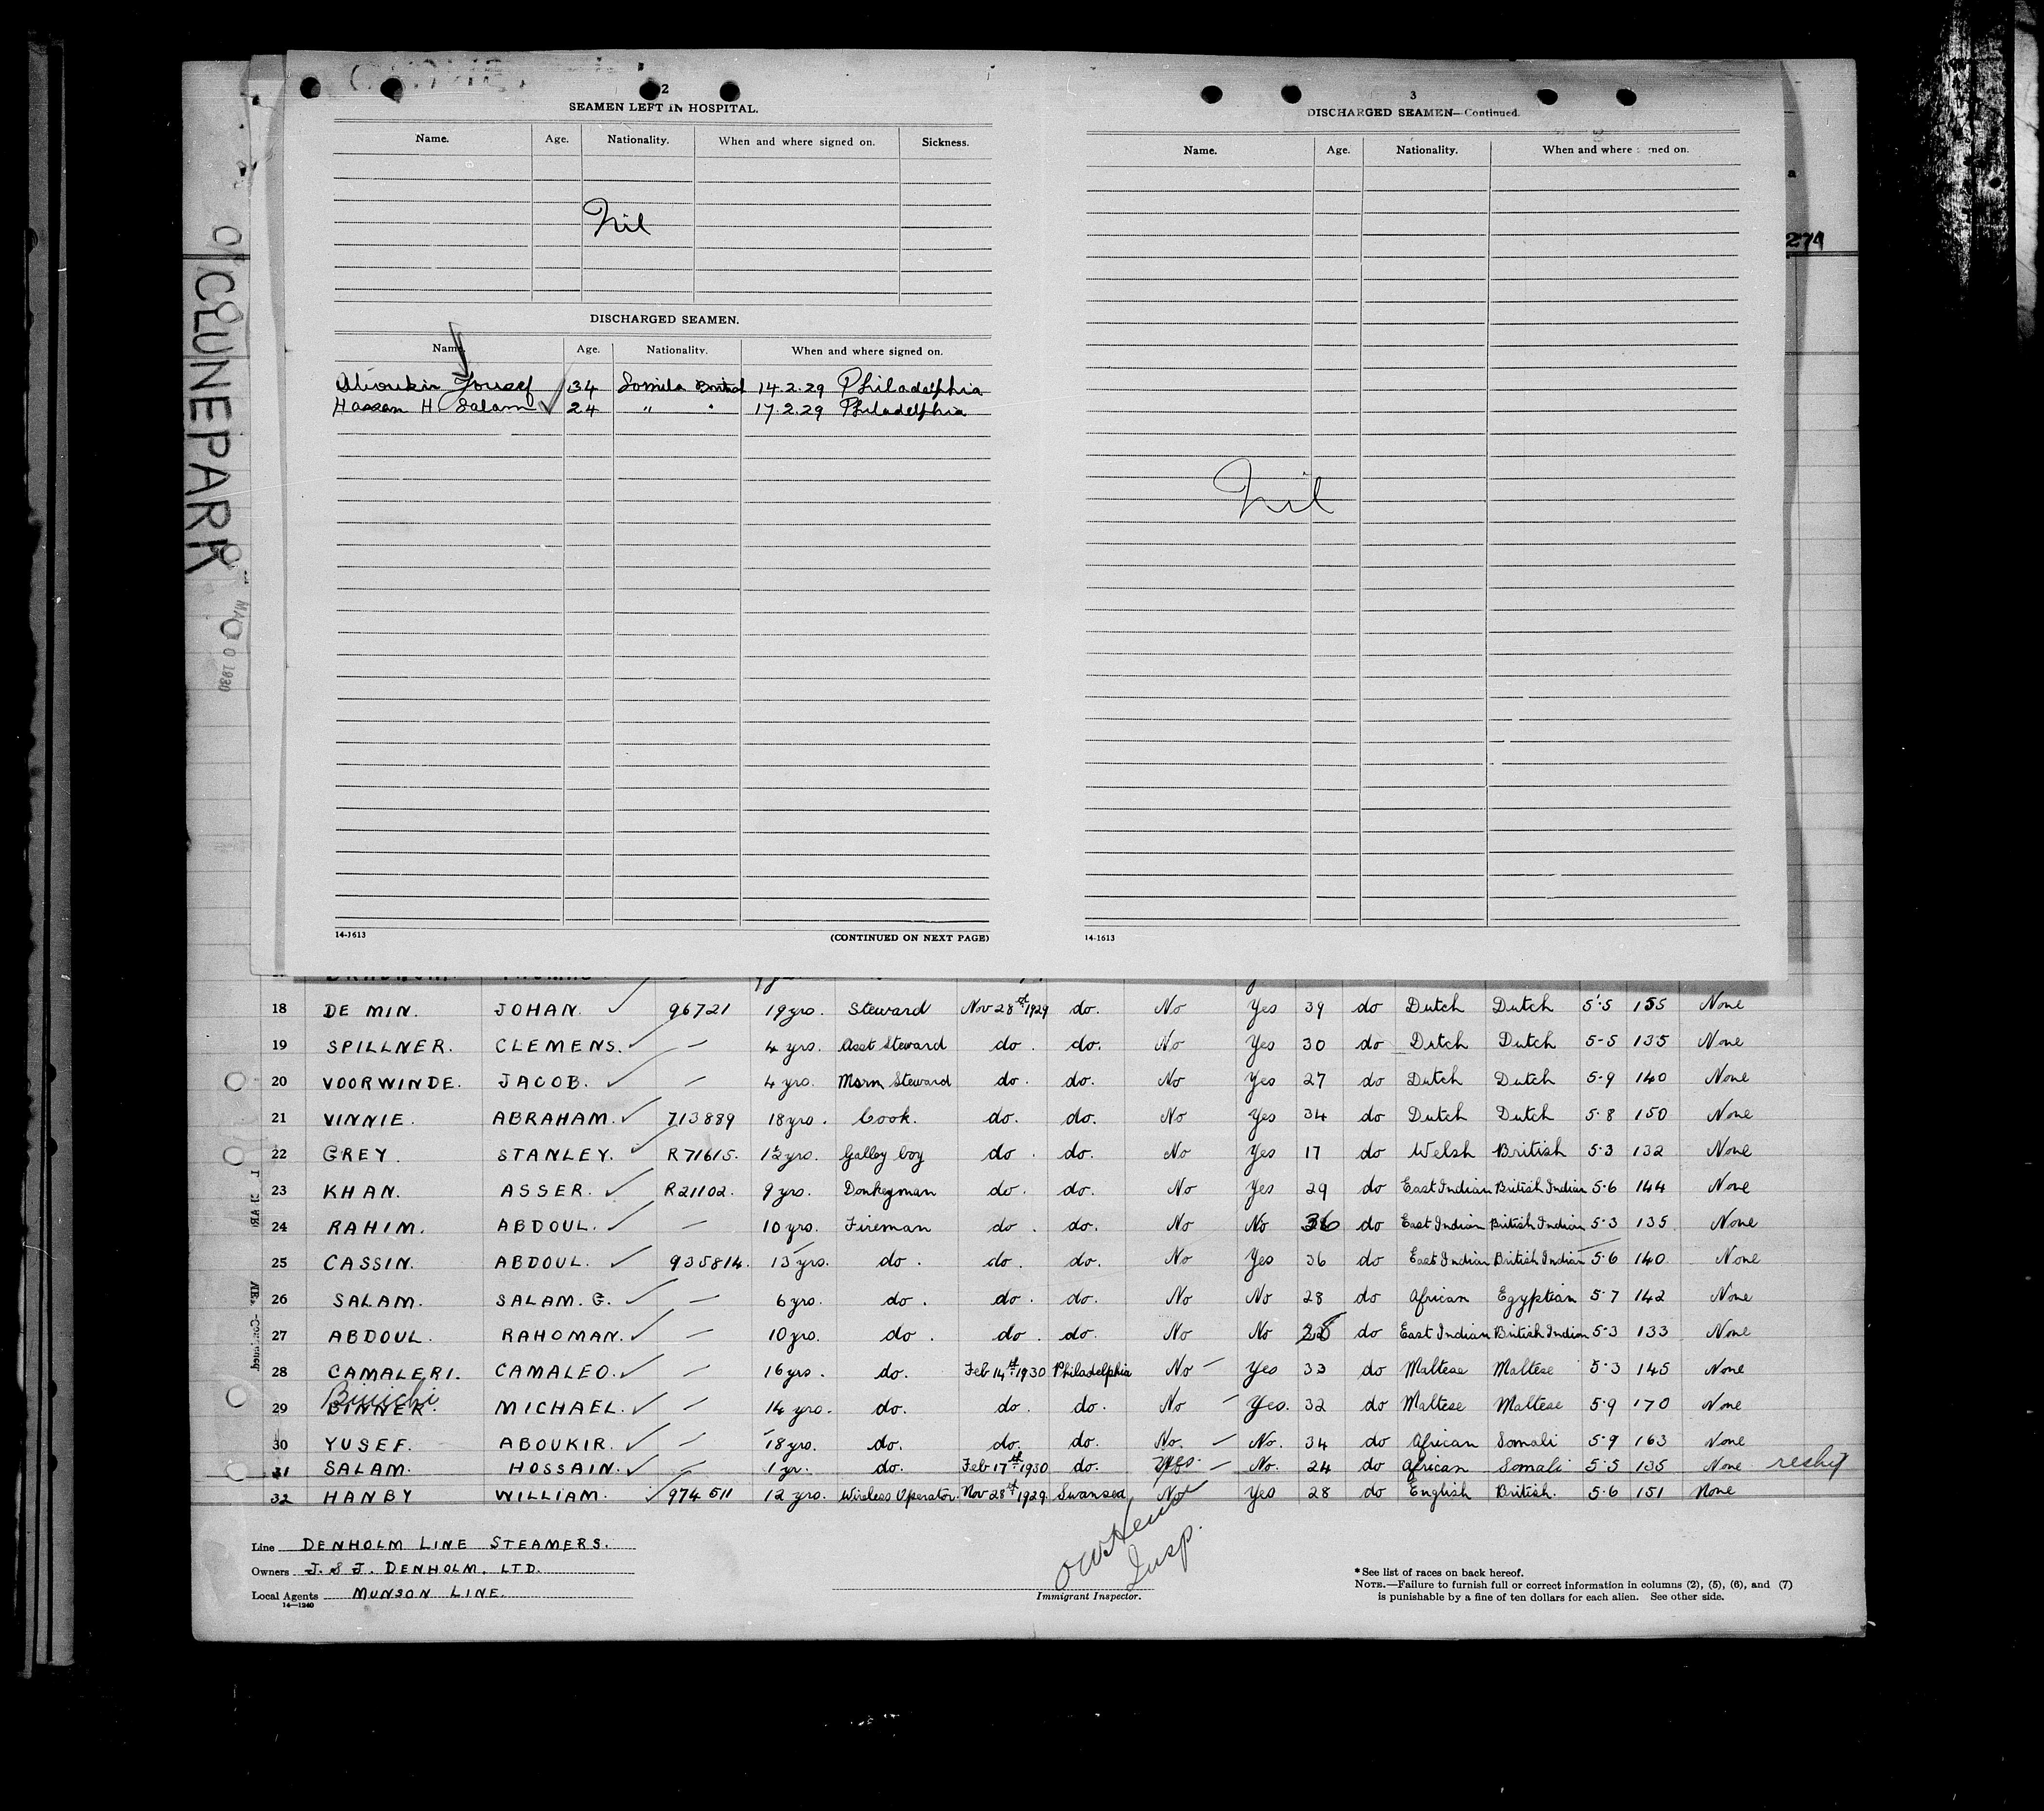 2
SEAMEN LEFT IN HOSPITAL.
Name. Age. Nationality. When and where signed on. Sickness.
Nil
DISCHARGED SEAMEN.
Name. Age. Nationality. When and where signed on.
Aboukir Yousef 34 Somila British 14.2.29 Philadelphia
Hassan H Salam 24 " " 17.2.29 Philadelphia
14-1613 (CONTINUED ON NEXT PAGE)
3
DISCHARGED SEAMEN—Continued.
Name. Age. Nationality. When and where signed on.
Nil
14-1613
CLUNEPARK
1930
271
18 DE MIN. JOHAN. 96721 19 yrs. Steward Nov 28st 1929 do. No Yes 39 do Dutch Dutch 5'.5 155 None
19 SPILLNER. CLEMENS. — 4 yrs. Asst Steward do. do. No Yes 30 do Dutch Dutch 5-5 135 None
20 VOORWINDE. JACOB. — 4 yrs. Msrm Steward do. do. No Yes 27 do Dutch Dutch 5.9 140 None
21 VINNIE. ABRAHAM. 713889 18 yrs. Cook. do. do. No Yes 34 do Dutch Dutch 5.8 150 None
22 GREY. STANLEY. R71615. 1½ yrs. Galley boy do. do. No Yes 17 do Welsh British 5.3 132 None
23 KHAN. ASSER. R21102. 9 yrs. Donkeyman do. do. No Yes 29 do East Indian British Indian 5.6 144 None
24 RAHIM. ABDOUL. — 10 yrs. Fireman do. do. No No 36 do East Indian British Indian 5.3 135 None
25 CASSIN. ABDOUL. 935814. 13 yrs. do. do. do. No Yes 36 do East Indian British Indian 5.6 140 None
26 SALAM. SALAM. G. — 6 yrs. do. do. do. No No 28 do African Egyptian 5.7 142 None
27 ABDOUL. RAHOMAN. — 10 yrs. do. do. do. No No 28 do East Indian British Indian 5.3 133 None
28 CAMALERI. CAMALEO. — 16 yrs. do. Feb 14st 1930 Philadelphia No Yes 33 do Maltese Maltese 5.3 145 None
29 BINNER. MICHAEL. — 14 yrs. do. do. do. No Yes. 32 do Maltese Maltese 5.9 170 None
30 YUSEF. ABOUKIR. — 18 yrs. do. do. do. No. No. 34 do African Somali 5.9 163 None
31 SALAM. HOSSAIN. — 1 yr. do. Feb 17st 1930 do. Yes. No. 24 do African Somali 5.5 135 None reship
32 HANBY WILLIAM. 974511 12 yrs. Wireless Operator. Nov 28st 1929 Swansea Not Yes 28 do English British. 5.6 151 None
Line DENHOLM LINE STEAMERS.
Owners J. & J. DENHOLM, LTD.
Local Agents MUNSON LINE.
14—1240
Insp.
Immigrant Inspector.
* See list of races on back hereof.
NOTE.—Failure to furnish full or correct information in columns (2), (5), (6), and (7)
is punishable by a fine of ten dollars for each alien. See other side.